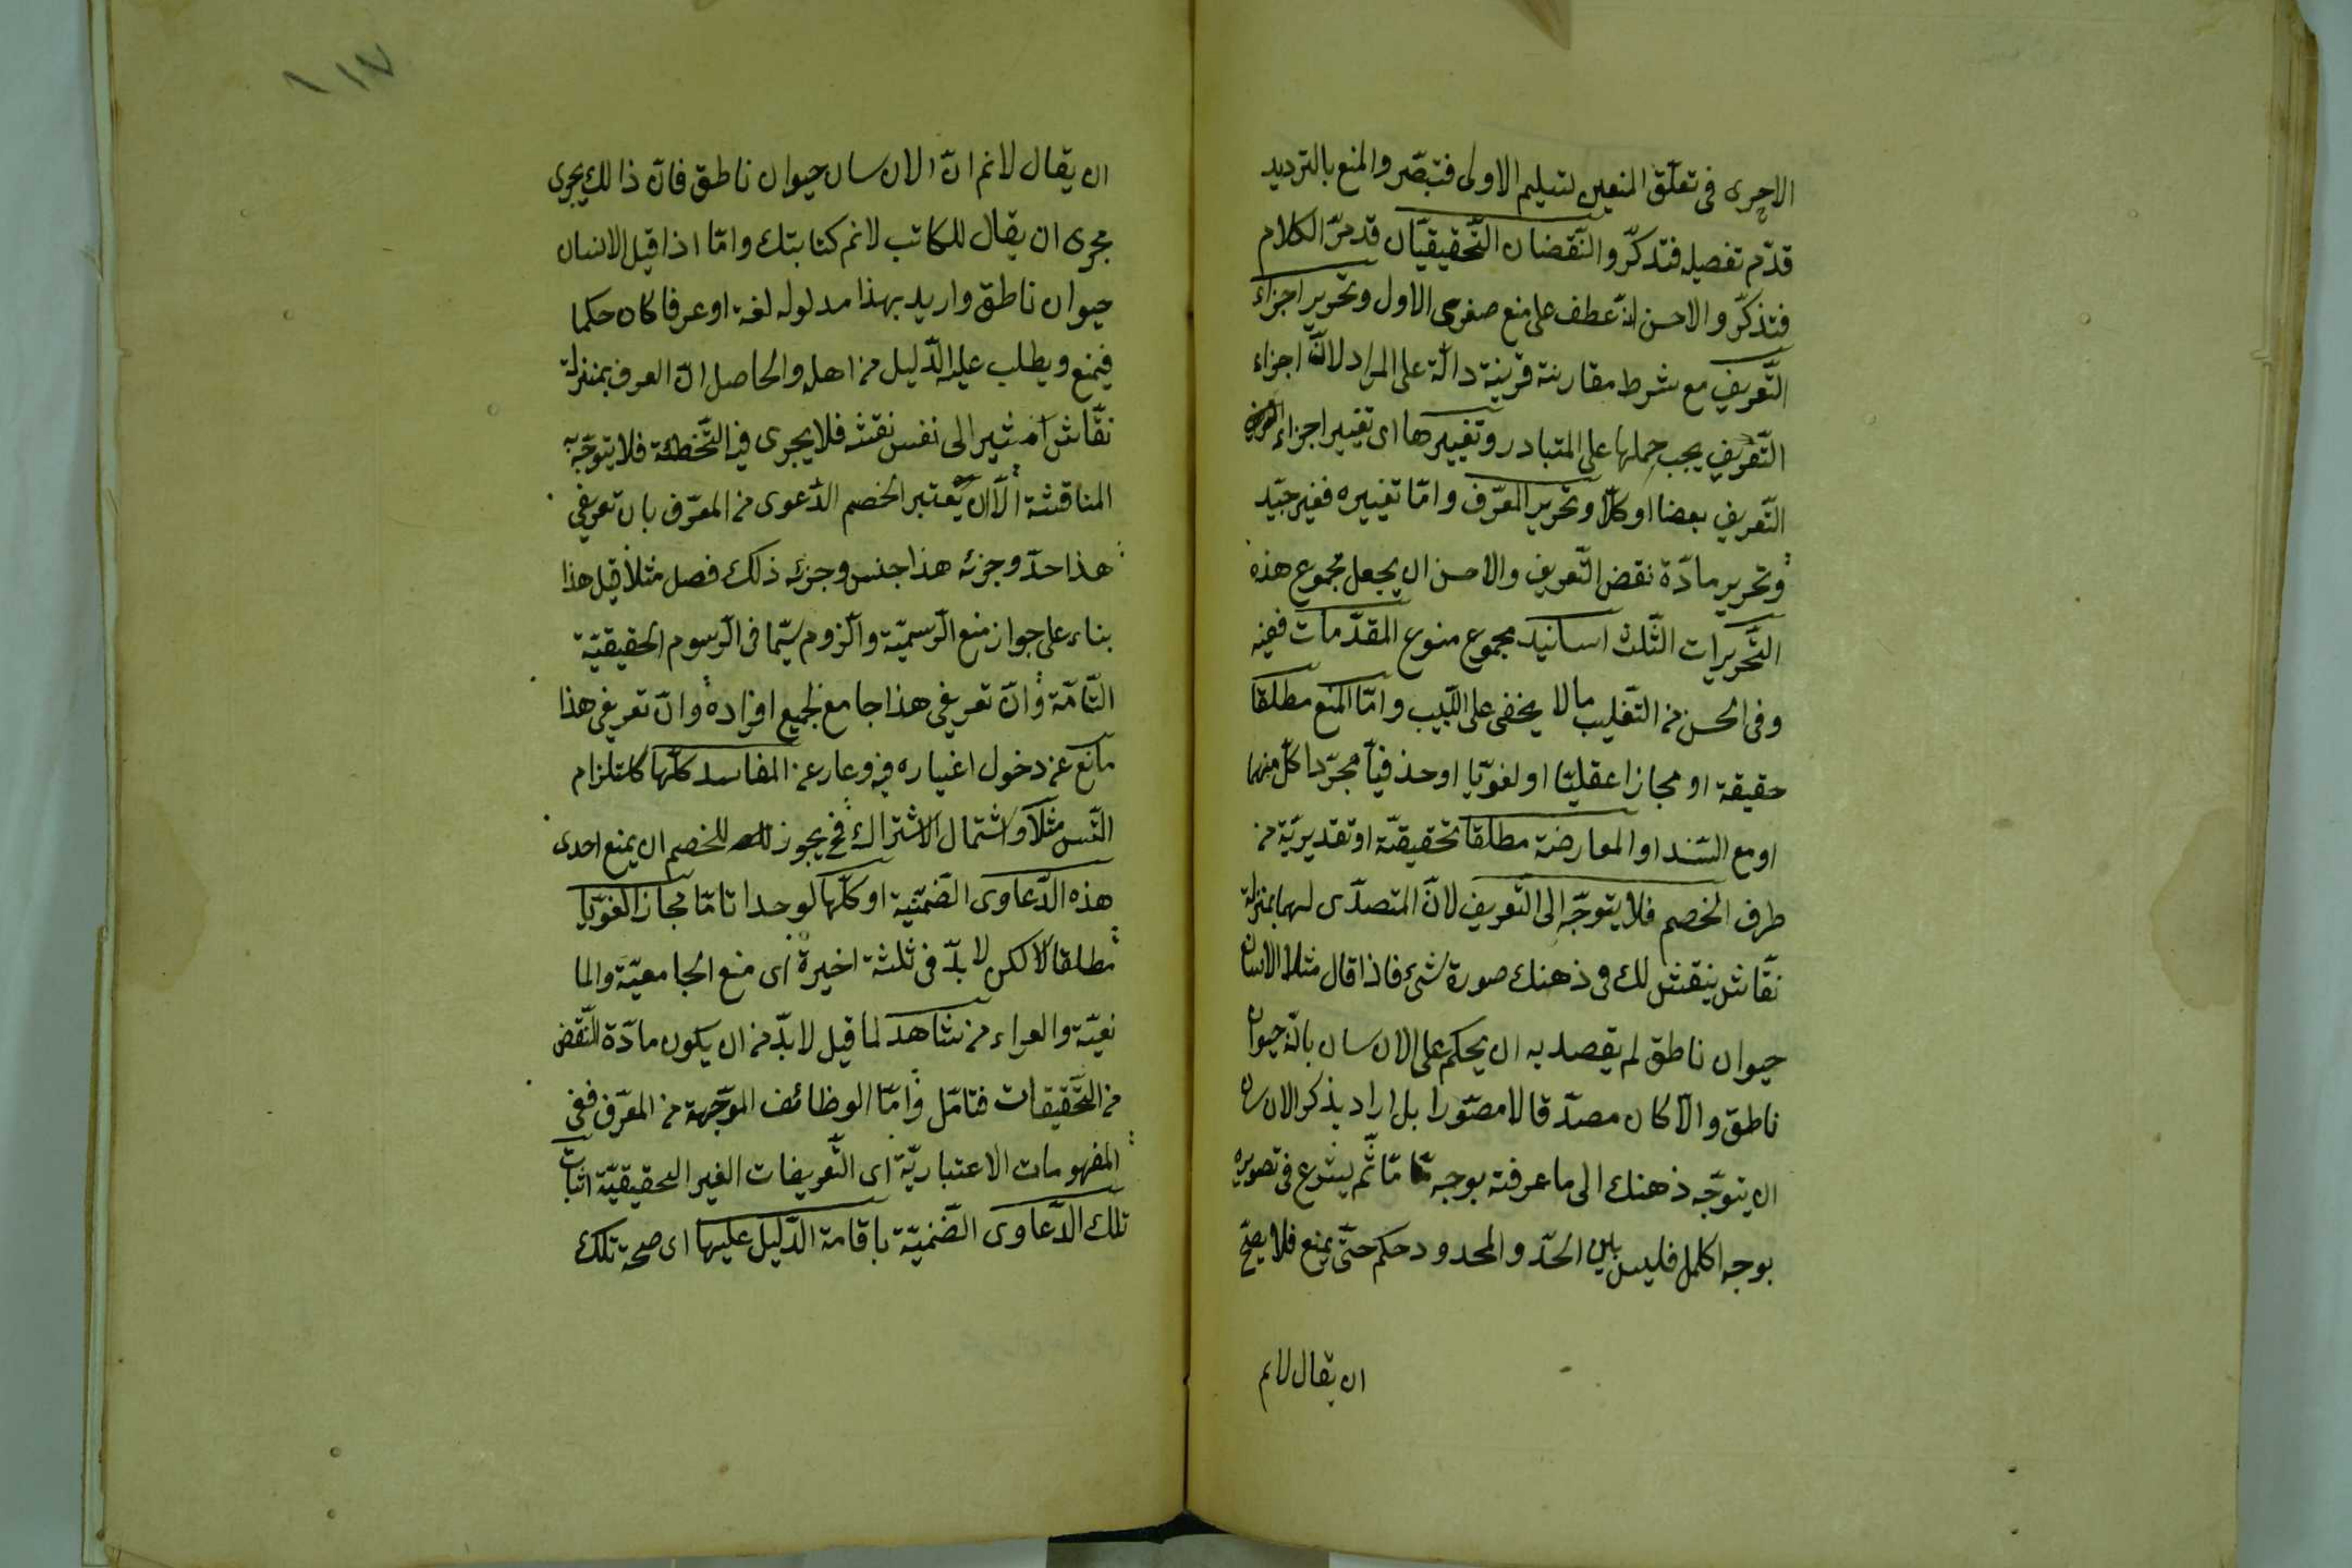 الاخرى فى تعلّق المنعين لتسليم الاولى فتبصّر والمنع بالترديد
قدّم تفصيله فتذكّر والنّقضان التّحقيقيّان قد مرّ الكلام
فتذكّر والاحسن انّه عطف على منع صغرى الاول وتحرير اجزاء
التّعريف مع شرط مقارنة قرينة دالّة على المراد لانّ اجزاء
التّعريف يجب حملها على المتبادر وتغييرها اى تغيير اجزاء
التّعريف بعضا او كلّا وتحرير المعرّف وامّا تغييره فغير جيّد
وتحرير مادّة نقض التّعريف والاحسن ان يجعل مجموع هذه
التّحريرات الثّلث اسانيد مجموع منوع المقدّمات ففيه
وفى الحسن من التّغليب مالا يخفى على اللّبيب وامّا المنع مطلقا
حقيقة او مجازا عقليّا او لغويّا او حذفيّا مجرّدا كلّ منهما
او مع السّند او المعارضة مطلقا تحقيقيّة او تقديريّة من
طرف الخصم فلا يتوجّه الى التّعريف لانّ المتصدّى لهما بمنزلة
نقّاش ينقش لك فى ذهنك صورة شئ فاذا قال مثلا الانسان
حيوان ناطق لم يقصد به ان يحكم على الانسان بانّه حيوان
ناطق والّا كان مصدّقا لا مصوّرا بل اراد بذكر الانسان
ان يتوجّه ذهنك الى ما عرفته بوجه مّا ثمّ يشرع فى تصويره
بوجه اكمل فليس بين الحدّ والمحدود حكم حتّى يمنع فلا يصحّ
ان يقال لانم
١١٧
ان يقال لانم انّ الانسان حيوان ناطق فانّ ذالك يجرى
مجرى ان يقال للكاتب لانم كتابتك وامّا اذا قيل الانسان
حيوان ناطق واريد بهذا مدلوله لغة او عرفا كان حكما
فيمنع ويطلب عليه الدّليل من اهله والحاصل انّ المعرف بمنزلة
نقّاش اذ تشير الى نفس نقشه فلا يجرى فيه التّخطئة فلا يتوجّه
المناقشة الّا ان يعتبر الخصم الدّعوى من المعرّف بان تعريفى
هذا حدّ وجزئه هذا جنس وجزئه ذلك فصل مثلا قيل هذا
بناء على جواز منع الرّسميّة والّزوم سيّما فى الرّسوم الحقيقيّة
التّامّة وانّ تعريفى هذا جامع لجميع افراده وانّ تعريفى هذا
مانع عن دخول اغياره فيه وعار عن المفاسد كلّها كاستلزام
التّس مثلا واشتمال الاشتراك فح يجوز للخصم ان يمنع احدى
هذه الدّعاوى الضّمنيّة او كلّها لوحدا تامّا مجازا لغويّا
مطلقا لا لكن لا بدّ فى ثلثة اخيرة اى منع الجامعيّة والما
نعيّة والعراء من شاهد لما قيل لا بدّ من ان يكون مادّة النّقض
من التّحقيقات فتامّل وامّا الوظائف الموجّهة من المعرّف ففى
المفهومات الاعتباريّة اى التّعريفات الغير الحقيقيّة اثبات
تلك الدّعاوى الضّمنيّة باقامة الدّليل عليها اى صحة تلك